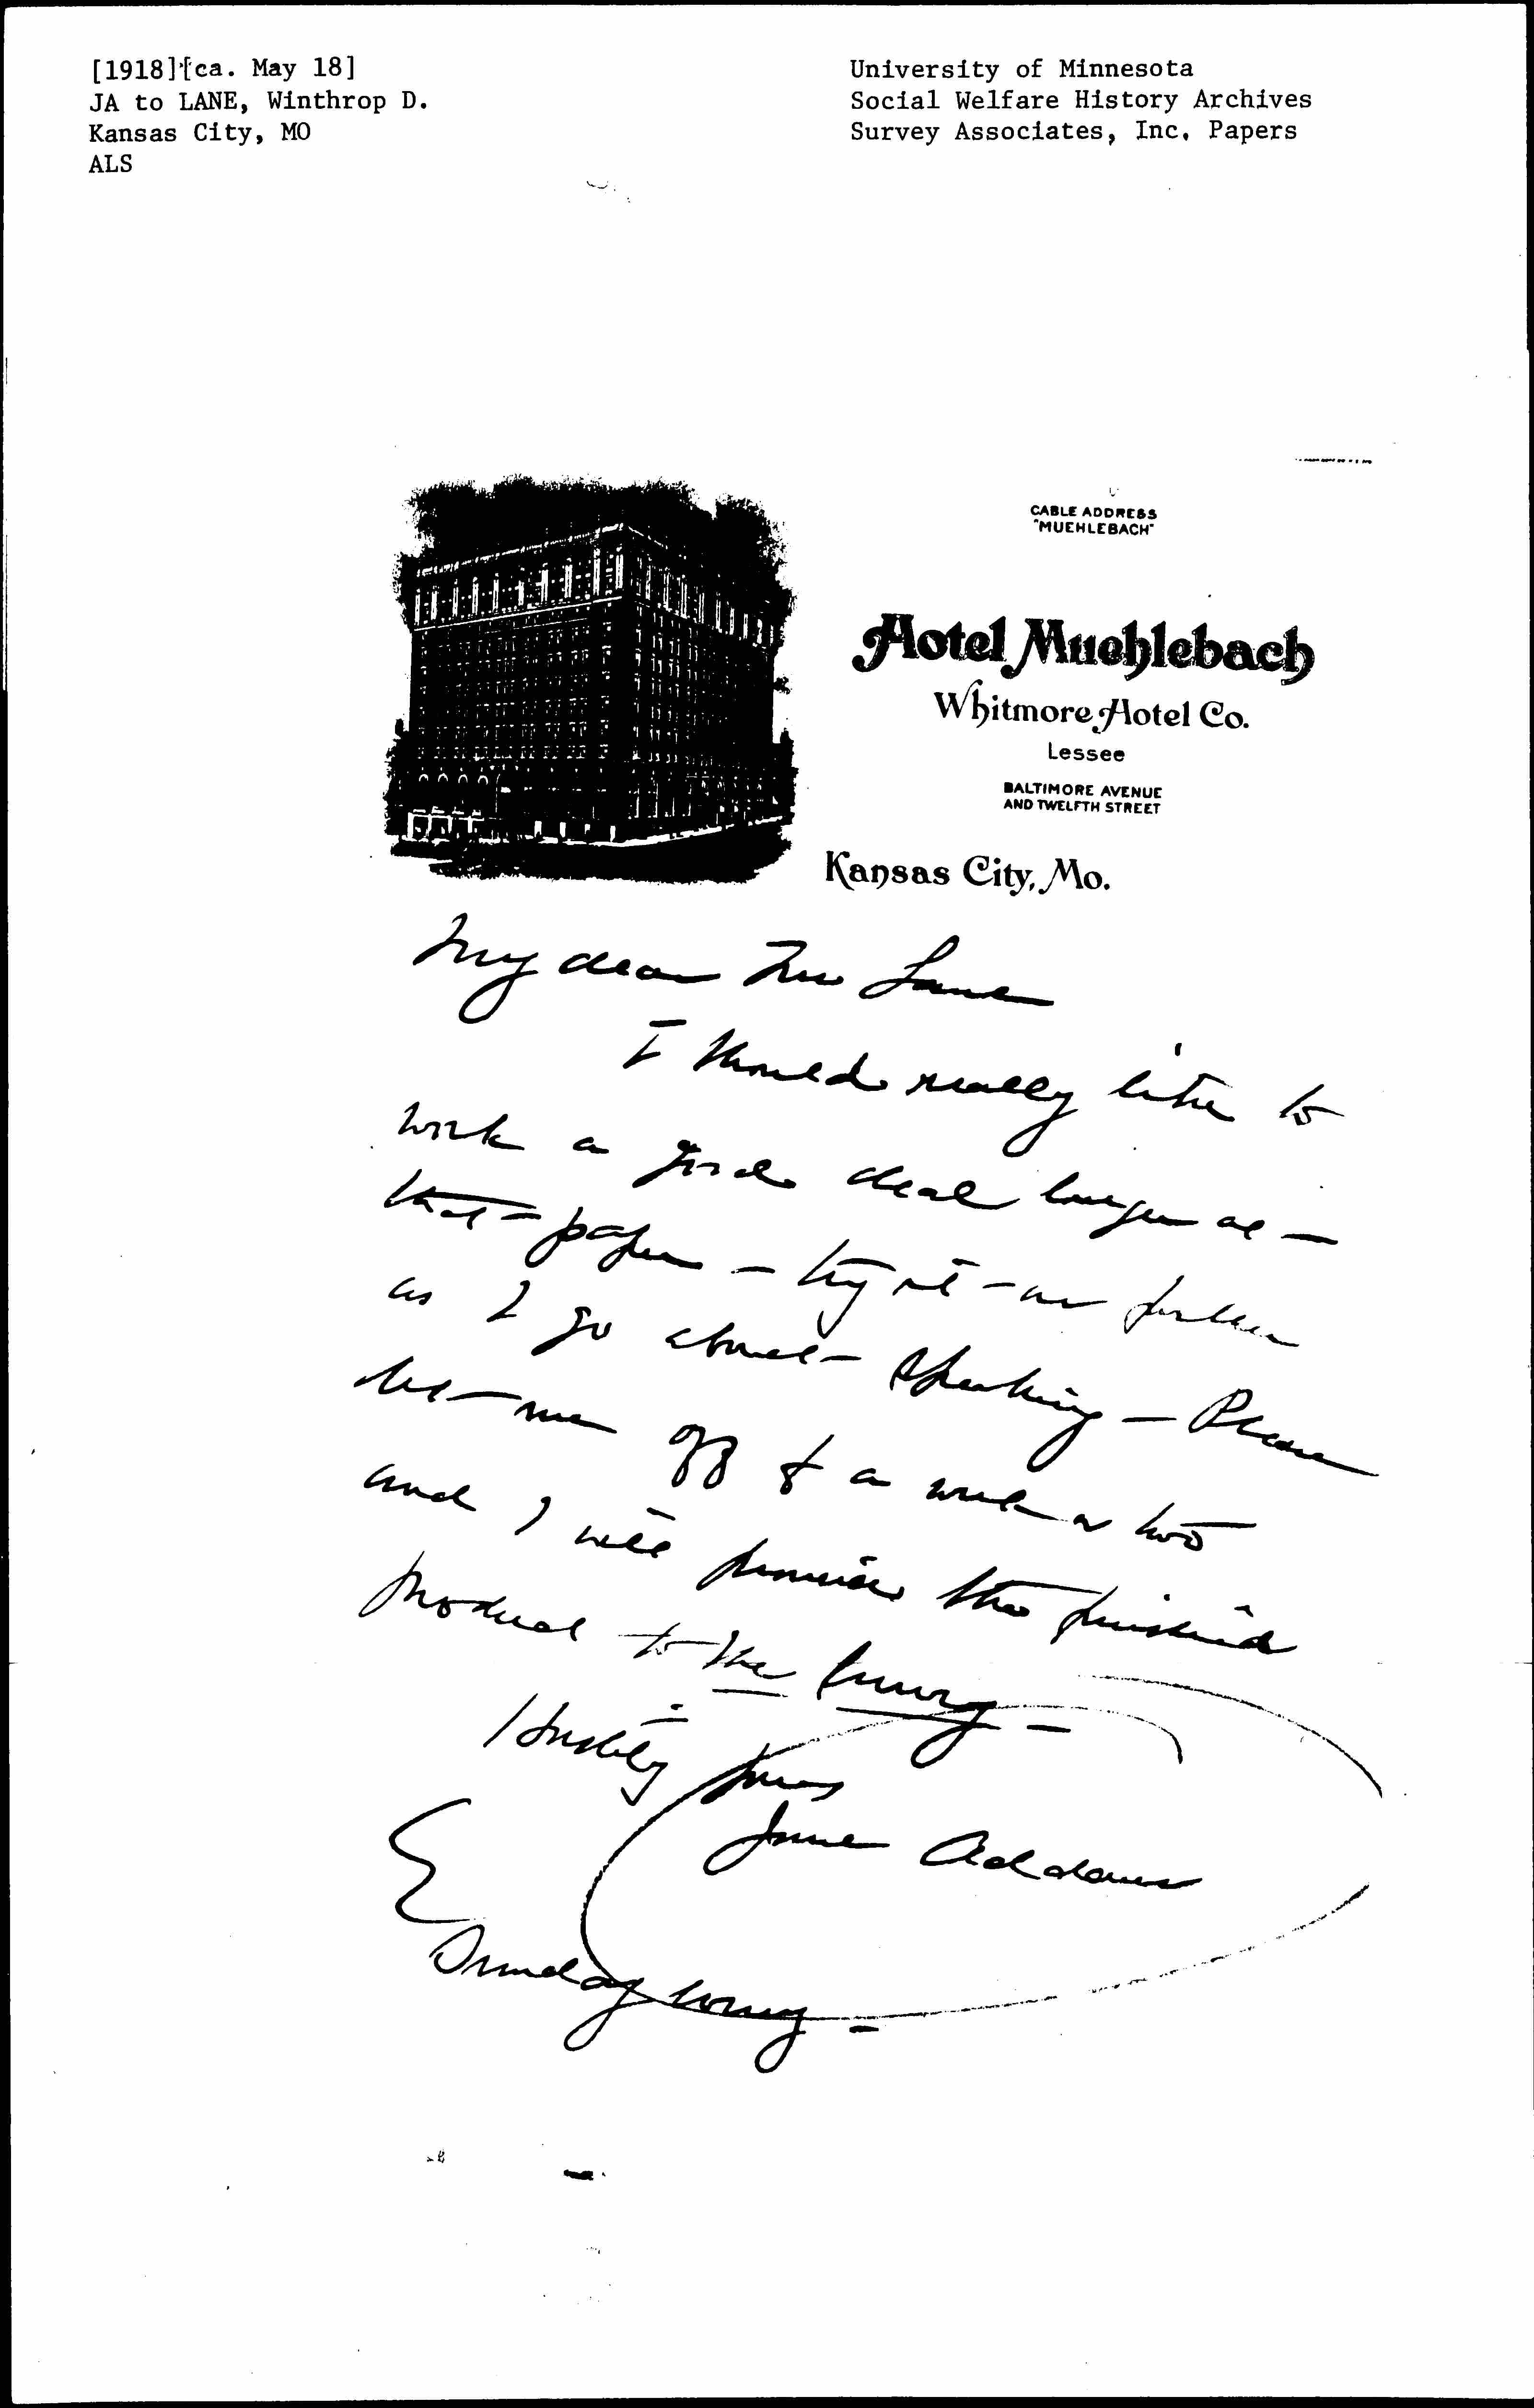 [1918] [ca. May 18]
JA to LANE, Winthrop D.
Kansas City, MO
ALS
University of Minnesota
Social Welfare History Archives
Survey Associates, Inc. Papers
CABLE ADDRESS
"MUEHLEBACH"
Hotel Muehlebach
Whitmore Hotel Co.
Lessee
BALTIMORE AVENUE
AND TWELFTH STREET
Kansas City, Mo.
My dear Mr Lane
I should really like to
work a good deal longer at —
that paper — try it — on further
as I go about — speaking — Please
let me off for a week or two
and I will promise the finished
product to the Survey —
Hastily yours
Jane Addams
Sunday